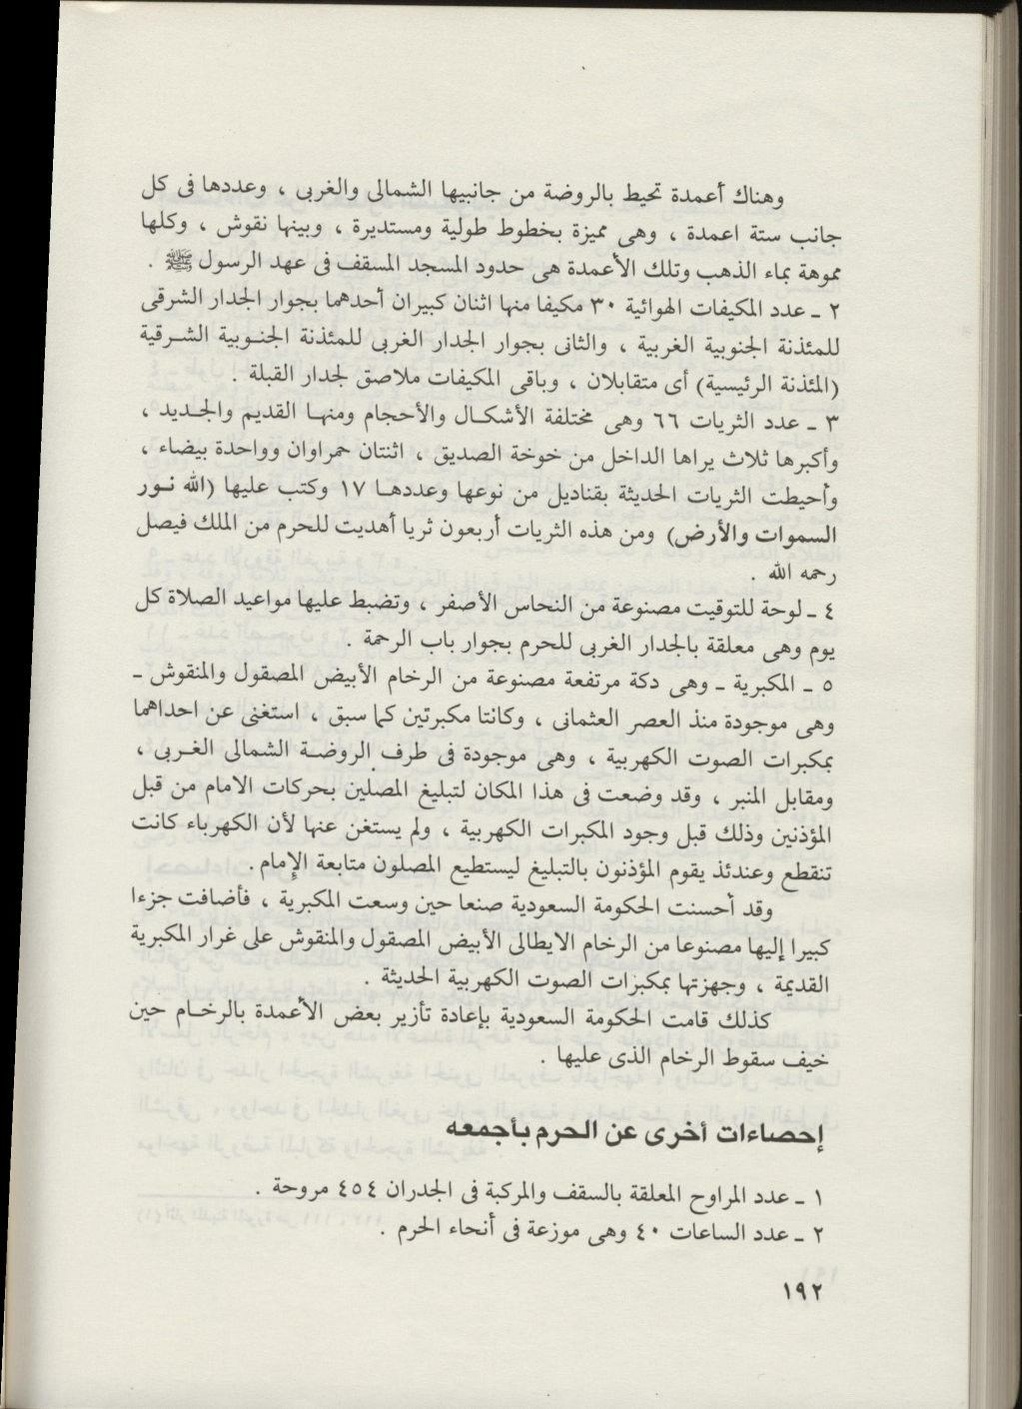 وهناك أعمدة تحيط بالروضة من جانبيها الشمالى والغربى ، وعددها فى كل
جانب ستة اعمدة ، وهى مميزة بخطوط طولية ومستديرة ، وبينها نقوش ، وكلها
مموهة بماء الذهب وتلك الأعمدة هى حدود المسجد المسقف فى عهد الرسول ﷺ .
٢ ـ عدد المكيفات الهوائية ٣٠ مكيفا منها اثنان كبيران أحدهما بجوار الجدار الشرقى
للمئذنة الجنوبية الغربية ، والثانى بجوار الجدار الغربى للمئذنة الجنوبية الشرقية
(المئذنة الرئيسية) أى متقابلان ، وباقى المكيفات ملاصق لجدار القبلة .
٣ ـ عدد الثريات ٦٦ وهى مختلفة الأشكال والأحجام ومنها القديم والجديد ،
وأكبرها ثلاث يراها الداخل من خوخة الصديق ، اثنتان حمراوان وواحدة بيضاء ،
وأحيطت الثريات الحديثة بقناديل من نوعها وعددها ١٧ وكتب عليها (الله نور
السموات والأرض) ومن هذه الثريات أربعون ثريا أهديت للحرم من الملك فيصل
رحمه الله .
٤ ـ لوحة للتوقيت مصنوعة من النحاس الأصفر ، وتضبط عليها مواعيد الصلاة كل
يوم وهى معلقة بالجدار الغربى للحرم بجوار باب الرحمة .
٥ ـ المكبرية ـ وهى دكة مرتفعة مصنوعة من الرخام الأبيض المصقول والمنقوش ـ
وهى موجودة منذ العصر العثمانى ، وكانتا مكبرتين كما سبق ، استغنى عن احداهما
بمكبرات الصوت الكهربية ، وهى موجودة فى طرف الروضة الشمالى الغربى ،
ومقابل المنبر ، وقد وضعت فى هذا المكان لتبليغ المصلين بحركات الامام من قبل
المؤذنين وذلك قبل وجود المكبرات الكهربية ، ولم يستغن عنها لأن الكهرباء كانت
تنقطع وعندئذ يقوم المؤذنون بالتبليغ ليستطيع المصلون متابعة الإمام .
وقد أحسنت الحكومة السعودية صنعا حين وسعت المكبرية ، فأضافت جزءا
كبيرا إليها مصنوعا من الرخام الايطالى الأبيض المصقول والمنقوش على غرار المكبرية
القديمة ، وجهزتها بمكبرات الصوت الكهربية الحديثة .
كذلك قامت الحكومة السعودية بإعادة تأزير بعض الأعمدة بالرخام حين
خيف سقوط الرخام الذى عليها .
إحصاءات أخرى عن الحرم بأجمعه
١ ـ عدد المراوح المعلقة بالسقف والمركبة فى الجدران ٤٥٤ مروحة .
٢ ـ عدد الساعات ٤٠ وهى موزعة فى أنحاء الحرم .
١٩٢